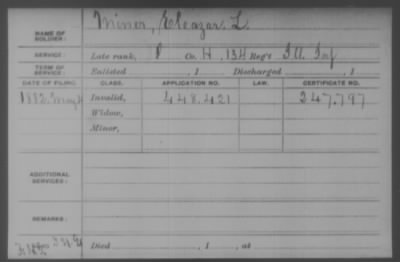 NAME OF SOLDIER: Miner, Eleazar L.
SERVICE: Late rank, P Co. H, 134 Reg't Ill. Inf
TERM OF SERVICE: Enlisted , 1 Discharged , 1
DATE OF FILING. CLASS. APPLICATION NO. LAW. CERTIFICATE NO.
1882 May Invalid, 448.421 247.797
Widow,
Minor,
ADDITIONAL SERVICES:
REMARKS:
Died , 1 , at